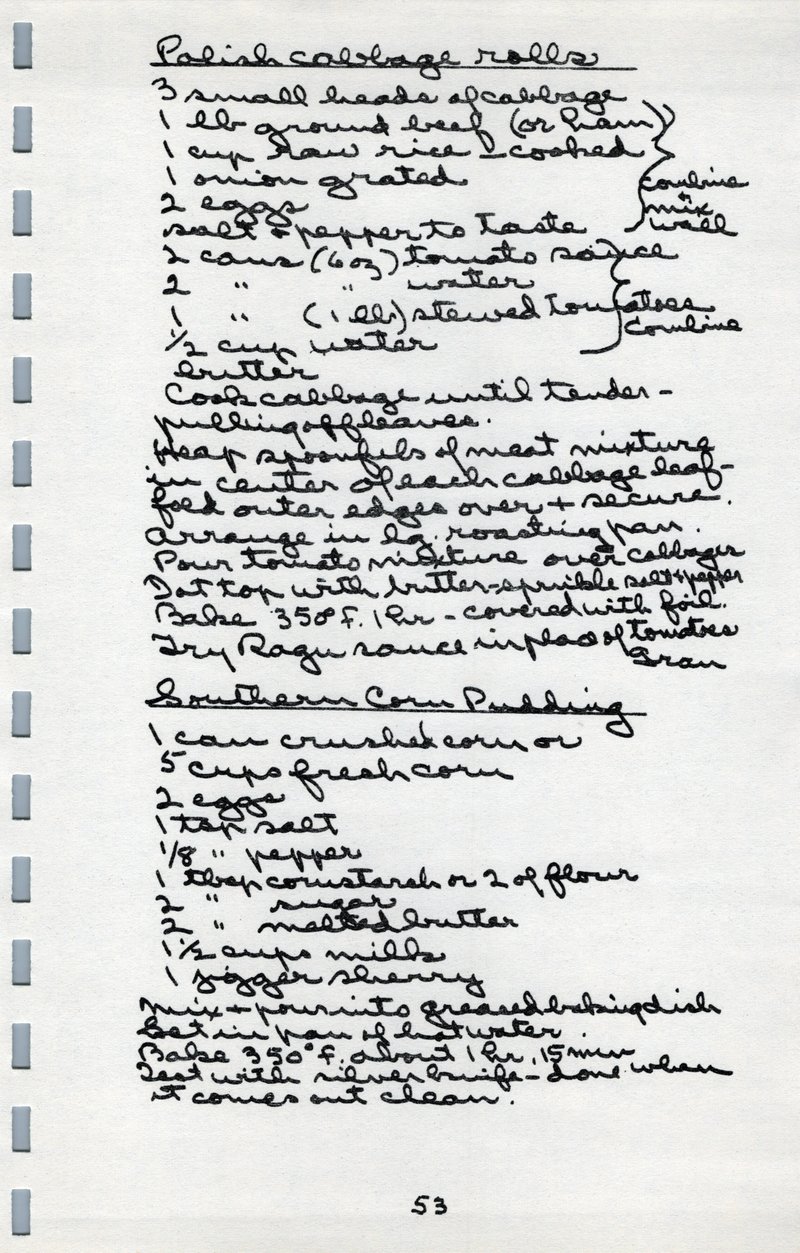 Polish cabbage rolls
3 small heads of cabbage
1 lb ground beef (or ham)
1 cup raw rice - cooked
1 onion grated
2 eggs
combine + mix well
salt + pepper to taste
2 cans (6 oz) tomato sauce
2 " " water
1 " (1 lb) stewed tomatoes
combine
1/2 cup water
butter
Cook cabbage until tender -
pulling off leaves.
Heap spoonfuls of meat mixture
in center of each cabbage leaf -
fold outer edges over + secure.
Arrange in lg. roasting pan.
Pour tomato mixture over cabbages
Dot top with butter - sprinkle salt + pepper
Bake 350° f. 1 hr - covered with foil.
Try Ragu sauce in place of tomatoes
Gran
Southern Corn Pudding
1 can crushed corn or
5 cups fresh corn
2 eggs
1 tsp salt
1/8 " pepper
1 tbsp cornstarch or 2 of flour
2 " sugar
2 " melted butter
1 1/2 cups milk
1 jigger sherry
Mix + pour into greased baking dish
Set in pan of hot water.
Bake 350° f. about 1 hr, 15 min
Test with silver knife - done when
it comes out clean.
53